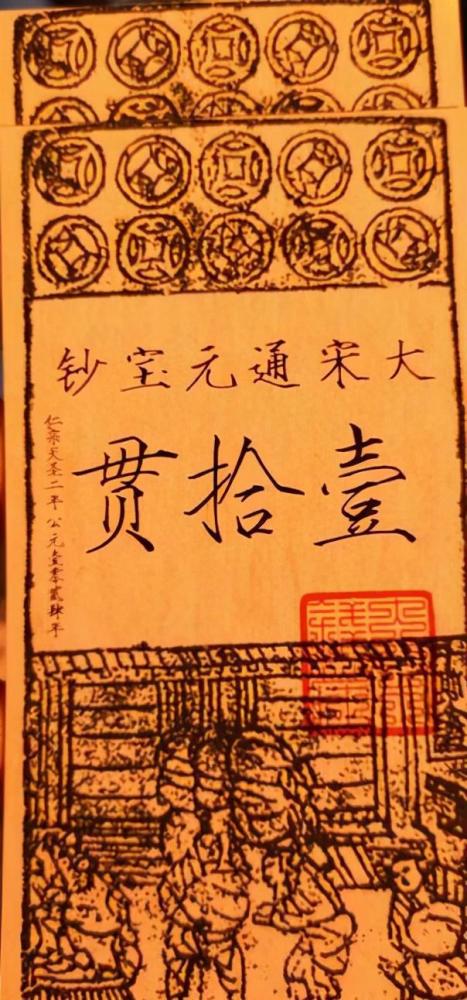 大宋通元宝钞
壹拾贯
仁宗天圣二年公元壹零贰肆年